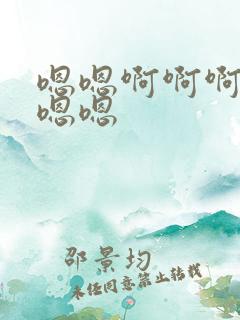 嗯嗯啊啊啊
嗯嗯
邵景均
未经同意禁止转载